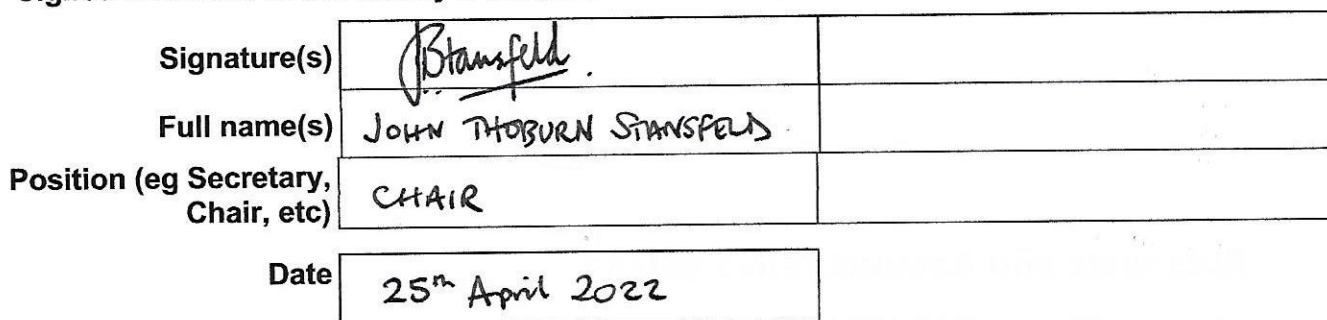 Signature(s) JStansfeld
Full name(s) JOHN THOBURN STANSFELD
Position (eg Secretary,
Chair, etc) CHAIR
Date 25th April 2022